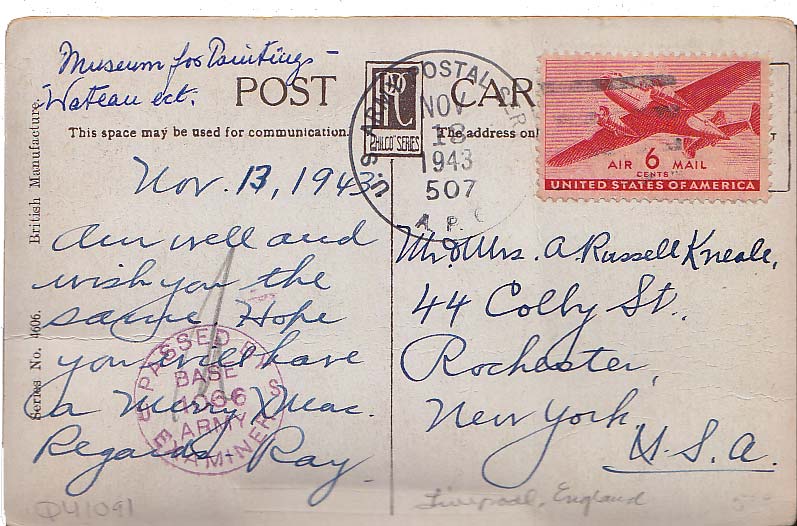 Museum for Paintings -
Wateau ect.
POST CAR
PHILCO SERIES
This space may be used for communication.
The address onl
British Manufacture.
Series No. 4606.
U.S. ARMY POSTAL SER
NOV
13
1943
507
A.P.O
AIR 6 MAIL
CENTS
UNITED STATES OF AMERICA
T
Nov. 13, 1943
Am well and
wish you the
same. Hope
you will have
a Merry Xmas.
Regards - Ray.
PASSED BY
BASE
1066
ARMY
EXAMINER
Mr. & Mrs. A. Russell Kneale,
44 Colby St.,
Rochester,
New York,
U.S.A.
Liverpool, England
D41091